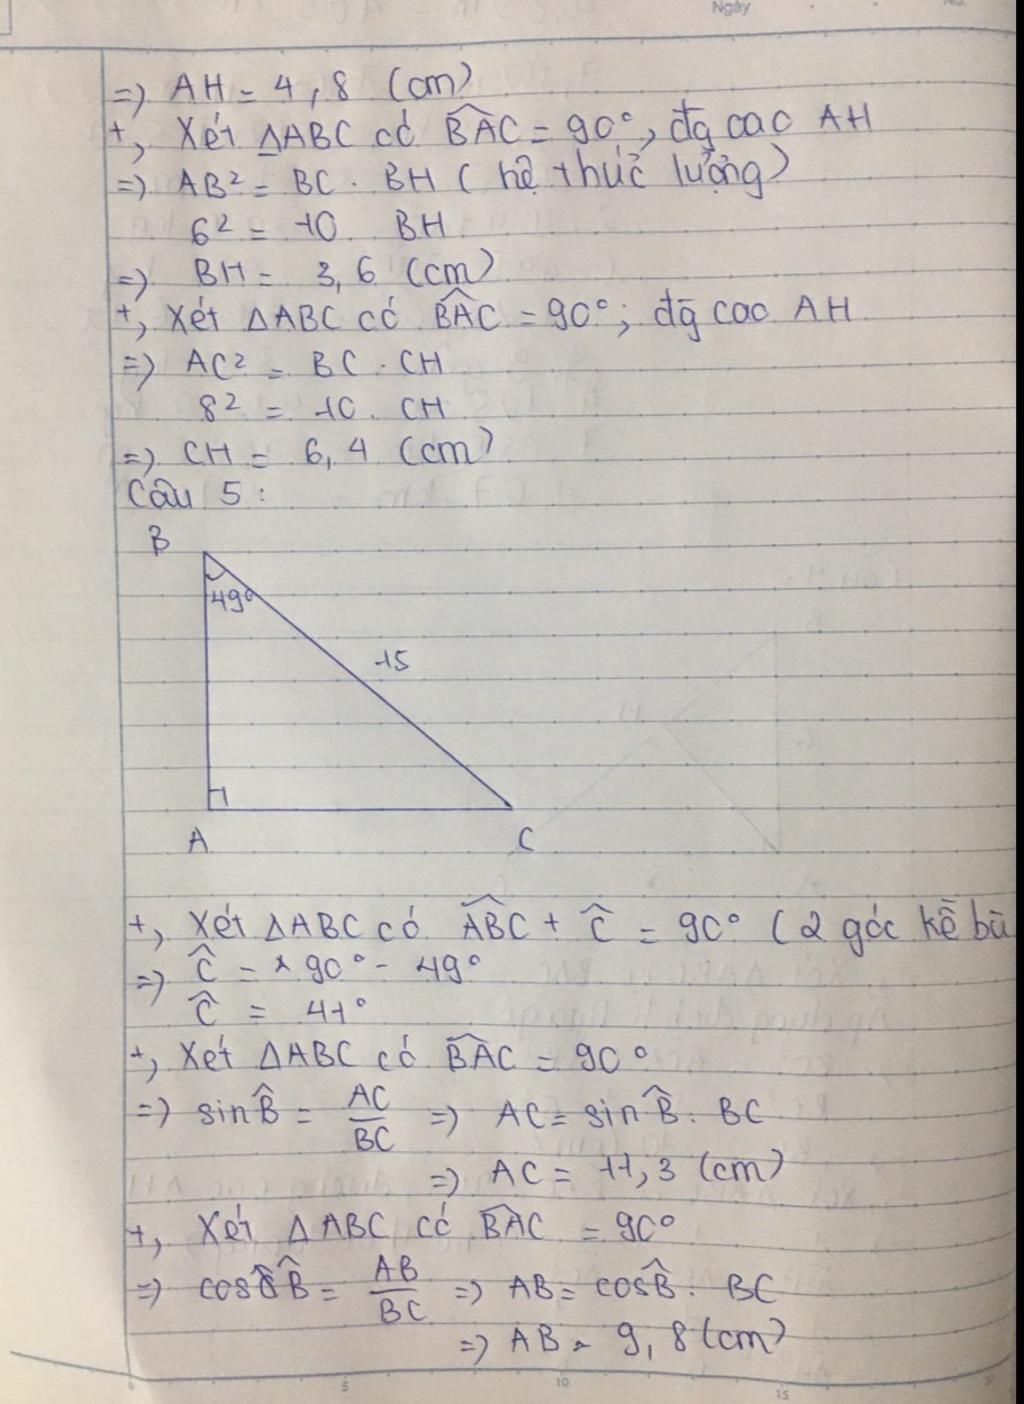 Ngày
=> AH = 4,8 (cm)
+, Xét ΔABC có BAC = 90°, đg cao AH
=> AB² = BC . BH (hệ thức lượng)
6² = 10 BH
=> BH = 3,6 (cm)
+, Xét ΔABC có BAC = 90°; đg cao AH
=> AC² = BC . CH
8² = 10 . CH
=> CH = 6,4 (cm)
Câu 5 :
B
49°
15
A
C
+, Xét ΔABC có ABC + Ĉ = 90° (2 góc kề bù
=> Ĉ = 90° - 49°
Ĉ = 41°
+, Xét ΔABC có BAC = 90°
=> sin B̂ = AC/BC => AC = sin B̂ . BC
=> AC = 11,3 (cm)
+, Xét ΔABC có BAC = 90°
=> cos B̂ = AB/BC => AB = cos B̂ . BC
=> AB ≈ 9,8 (cm)
5
10
15